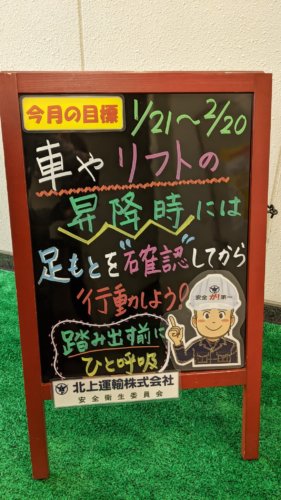 今月の目標
1/21～2/20
車やリフトの
昇降時には
足もとを"確認"してから
行動しよう!
踏み出す前に
ひと呼吸
安全が!第一
北上運輸株式会社
安全衛生委員会